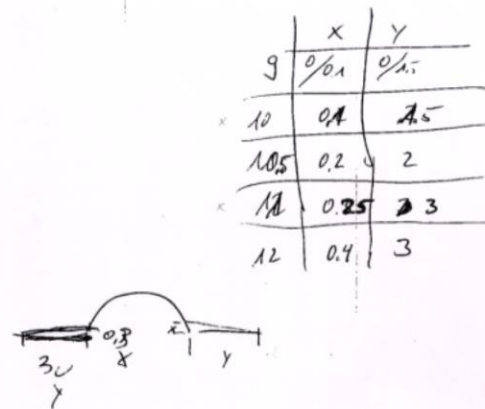 X Y
9 0/0.1 0/1.5
x 10 0.1 1.5
10.5 0.2 2
x 11 0.25 3
12 0.4 3
X Y
Y